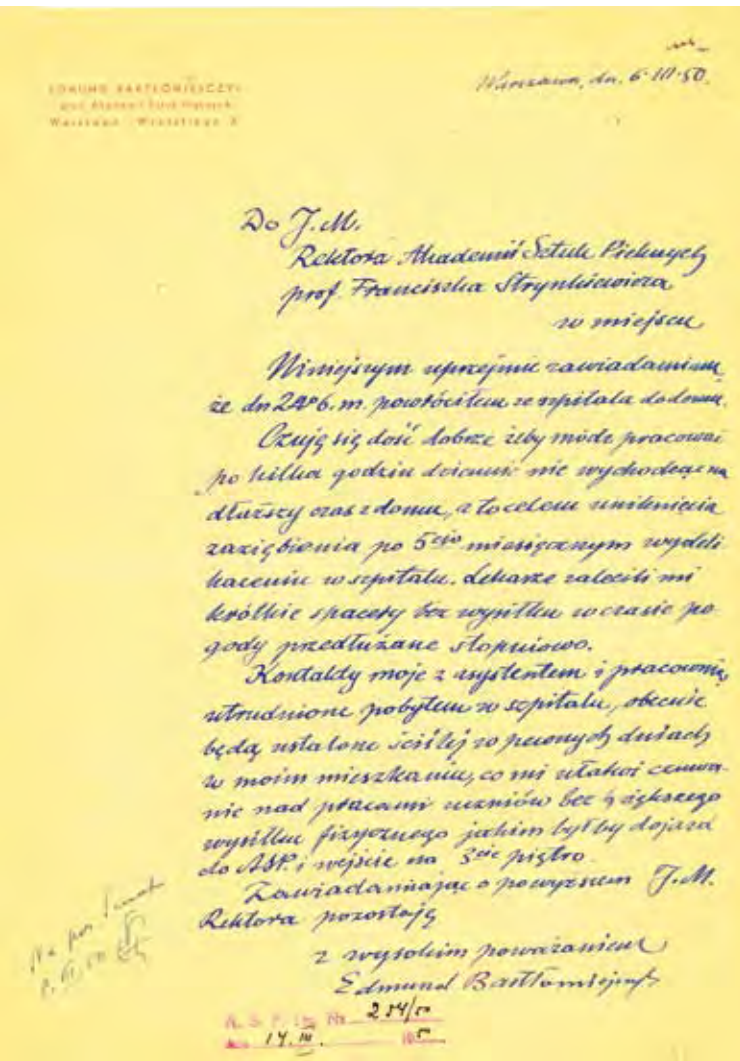 EDMUND BARTŁOMIEJCZYK
prof. Akademii Sztuk Pięknych
Warszawa
Warszawa, dn. 6·III·50.
Do J. M.
Rektora Akademii Sztuk Pięknych
prof. Franciszka Strynkiewicza
w miejscu
Niniejszym uprzejmie zawiadamiam
że dn 24 b. m. powróciłem ze szpitala do domu.
Czuję się dość dobrze żeby módz pracować
po kilka godzin dziennie nie wychodząc na
dłuższy czas z domu, a to celem uniknięcia
zaziębienia po 5cio miesięcznym wydeli
kaceniu w szpitalu. Lekarze zalecili mi
krótkie spacery bez wysiłku w czasie po-
gody przedłużane stopniowo.
Kontakty moje z asystentem i pracownią,
utrudnione pobytem w szpitalu, obecnie
będą ustalone ściślej w pewnych dniach
w moim mieszkaniu, co mi ułatwi czuwa-
nie nad pracami uczniów bez większego
wysiłku fizycznego jakim byłby dojazd
do ASP. i wejście na 3cie piętro.
Zawiadamiając o powyższem J. M.
Rektora pozostaję
z wysokim poważaniem
Edmund Bartłomiejczyk
Na pos. Senatu
A. S. P. Nr 254/50
14. III. 1950